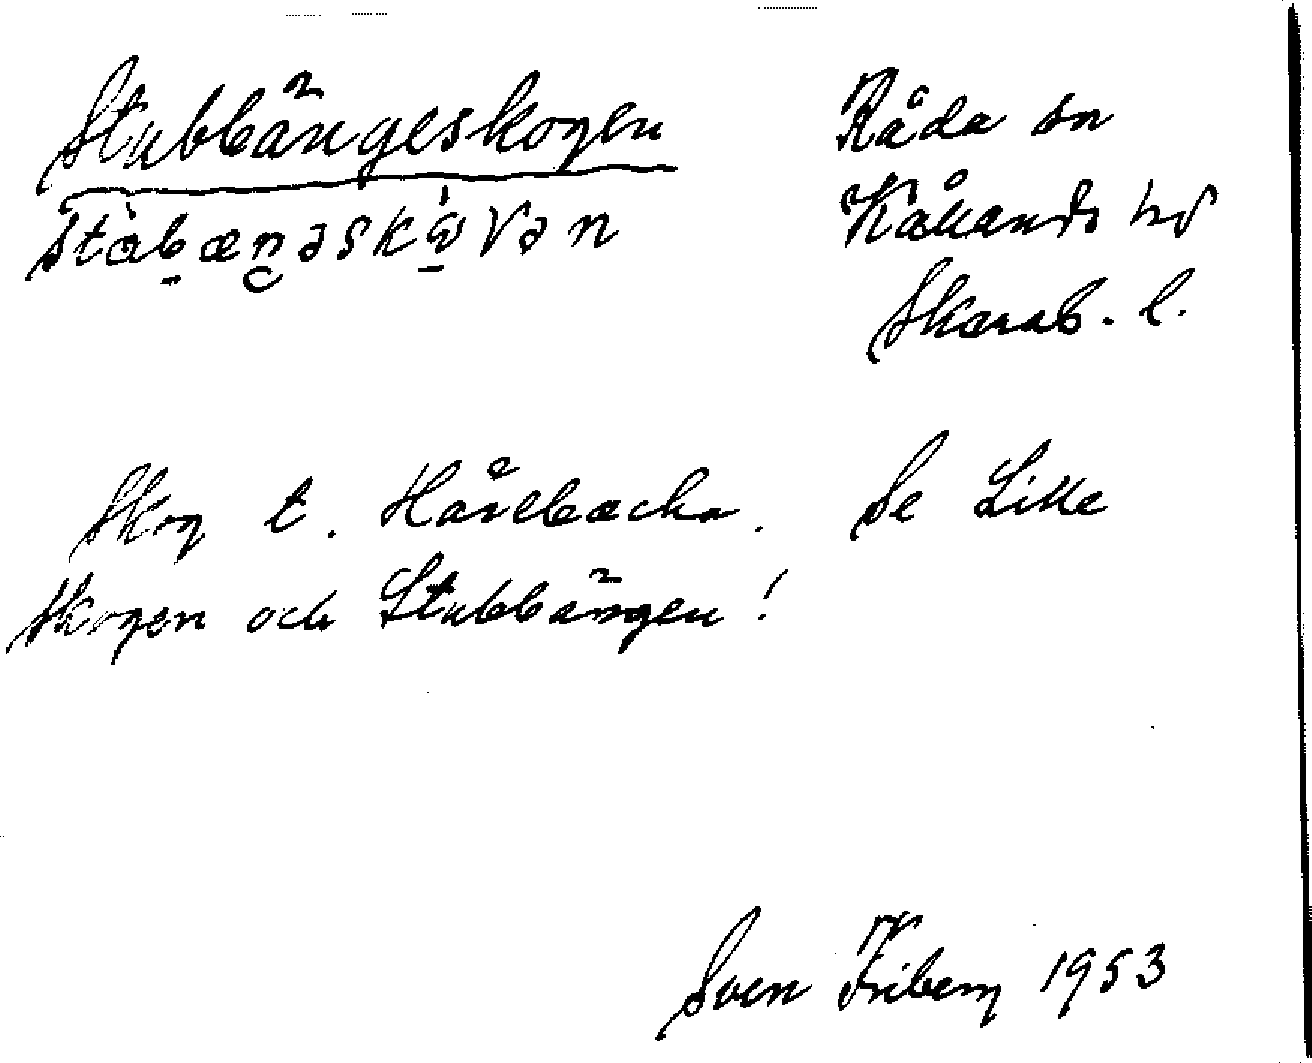 Stubbängeskogen
Råda sn
Kållands hd
Skarab. l.
Skog t. Hårlbacka. Se Lille
Skogen och Stubbängen!
Sven Friberg 1953